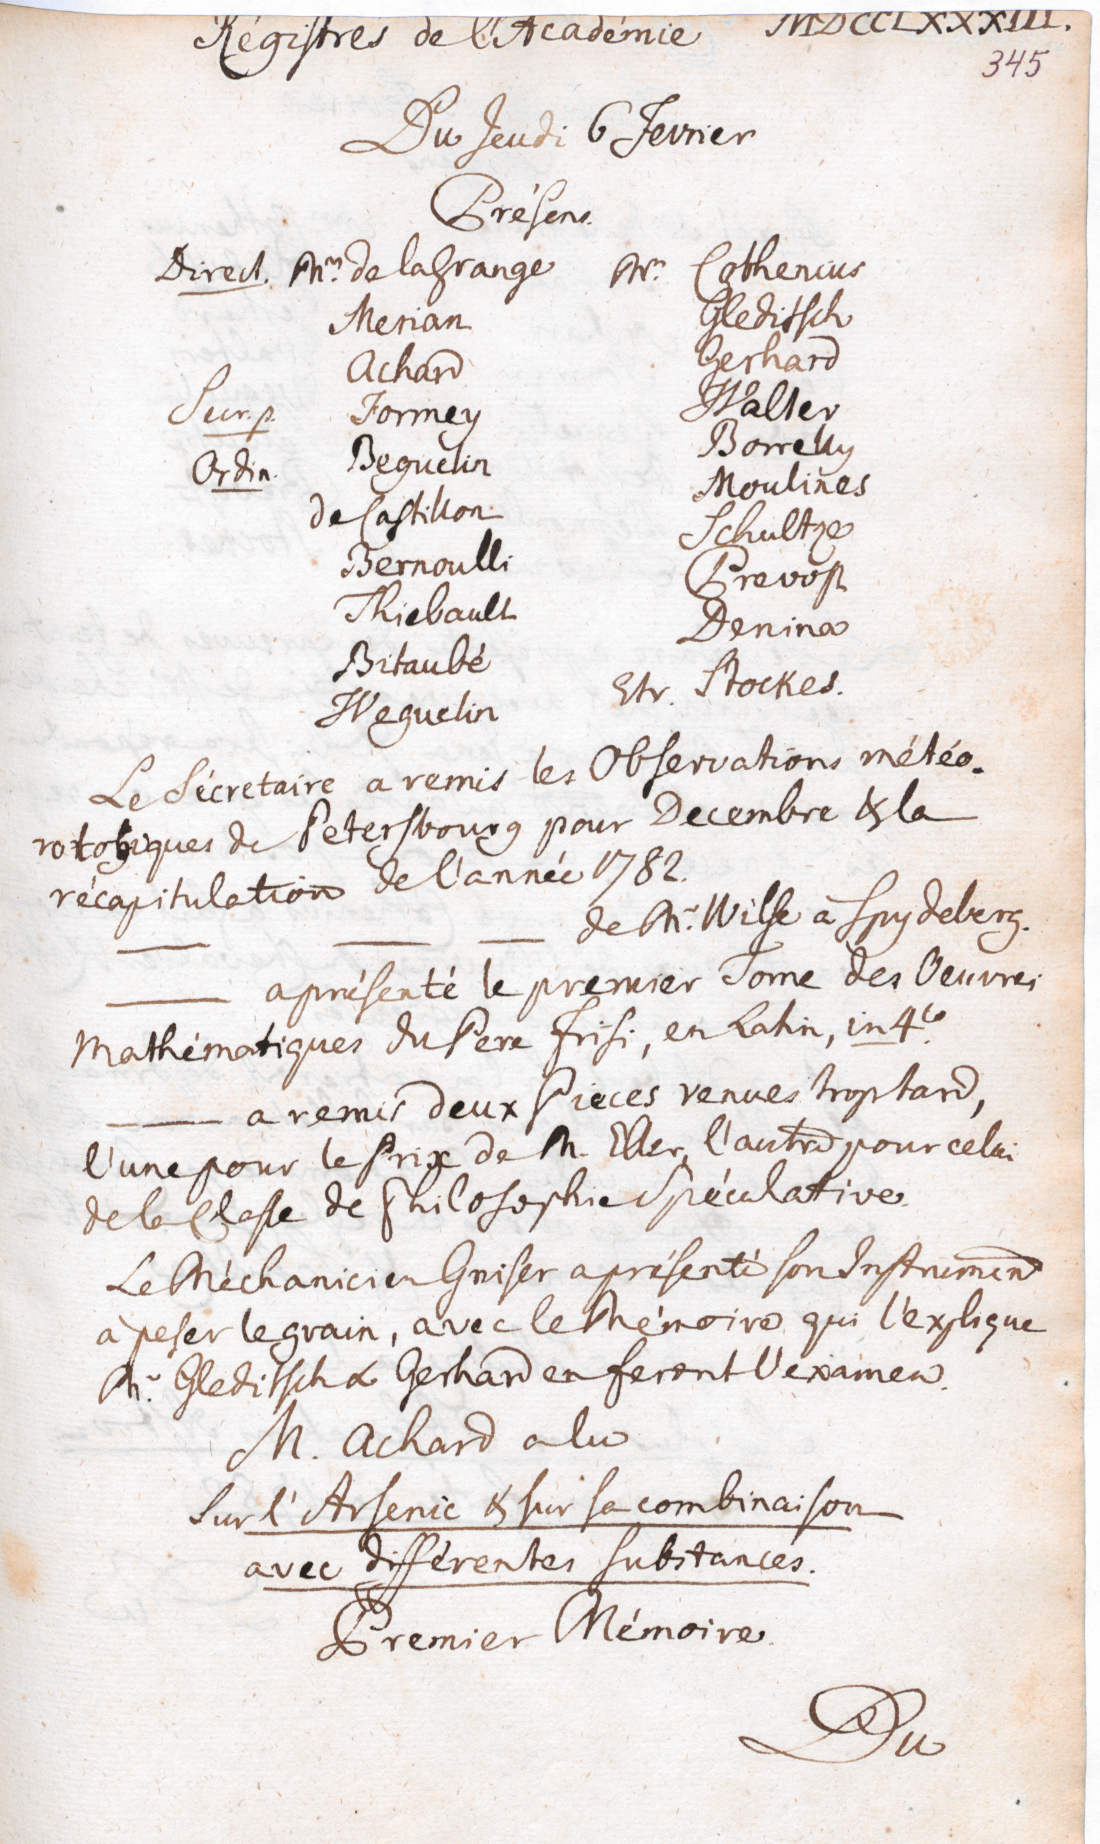 Régistres de l'Académie MDCCLXXXIII.
345
Du Jeudi 6 Fevrier
Présens.
Direct. Mrs de la Grange
Merian
Achard
Secr. p. Formey
Ordin. Beguelin
de Castillon
Bernoulli
Thiebault
Bitaubé
Weguelin
Mrs Cothenius
Gleditsch
Gerhard
Walter
Borrelly
Moulines
Schultze
Prevost
Denina
Etr. Stockes.
Le Sécretaire a remis les Observations météo-
rologiques de Petersbourg pour Decembre & la
récapitulation de l'année 1782.
— — — de Mr. Wilse à Spydeberg.
— a présenté le premier Tome des Oeuvres
Mathématiques du Pere Frisi, en Latin, in 4to.
— a remis deux Pieces venues trop tard,
l'une pour le Prix de M. Eller, l'autre pour celui
de la Classe de Philosophie Spéculative.
Le Méchanicien Gniser a présenté son Instrument
à peser le grain, avec le Mémoire qui l'explique
Mrs. Gleditsch & Gerhard en feront l'examen.
M. Achard a lu
Sur l'Arsenic & sur sa combinaison
avec différentes substances.
Premier Mémoire.
Du